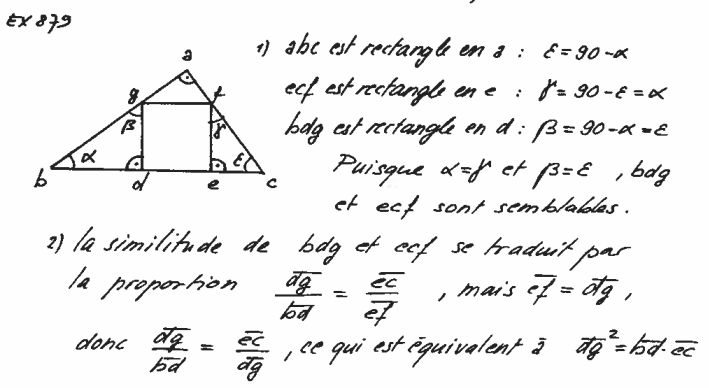 EX 879
1) abc est rectangle en a : ε = 90 - α
ecf est rectangle en e : γ = 90 - ε = α
bdg est rectangle en d : β = 90 - α = ε
Puisque α = γ et β = ε , bdg
et ecf sont semblables .
a
g
f
β
γ
α
ε
b
d
e
c
2) la similitude de bdg et ecf se traduit par
la proportion \frac{\overline{dg}}{\overline{bd}} = \frac{\overline{ec}}{\overline{ef}} , mais \overline{ef} = \overline{dg} ,
donc \frac{\overline{dg}}{\overline{bd}} = \frac{\overline{ec}}{\overline{dg}} , ce qui est équivalent à \overline{dg}^2 = \overline{bd} · \overline{ec}